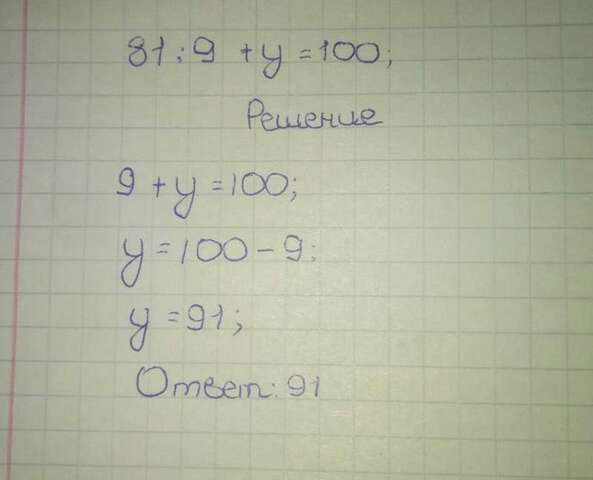 81:9 + y = 100;
Решение
9 + y = 100;
y = 100 - 9;
y = 91;
Ответ: 91